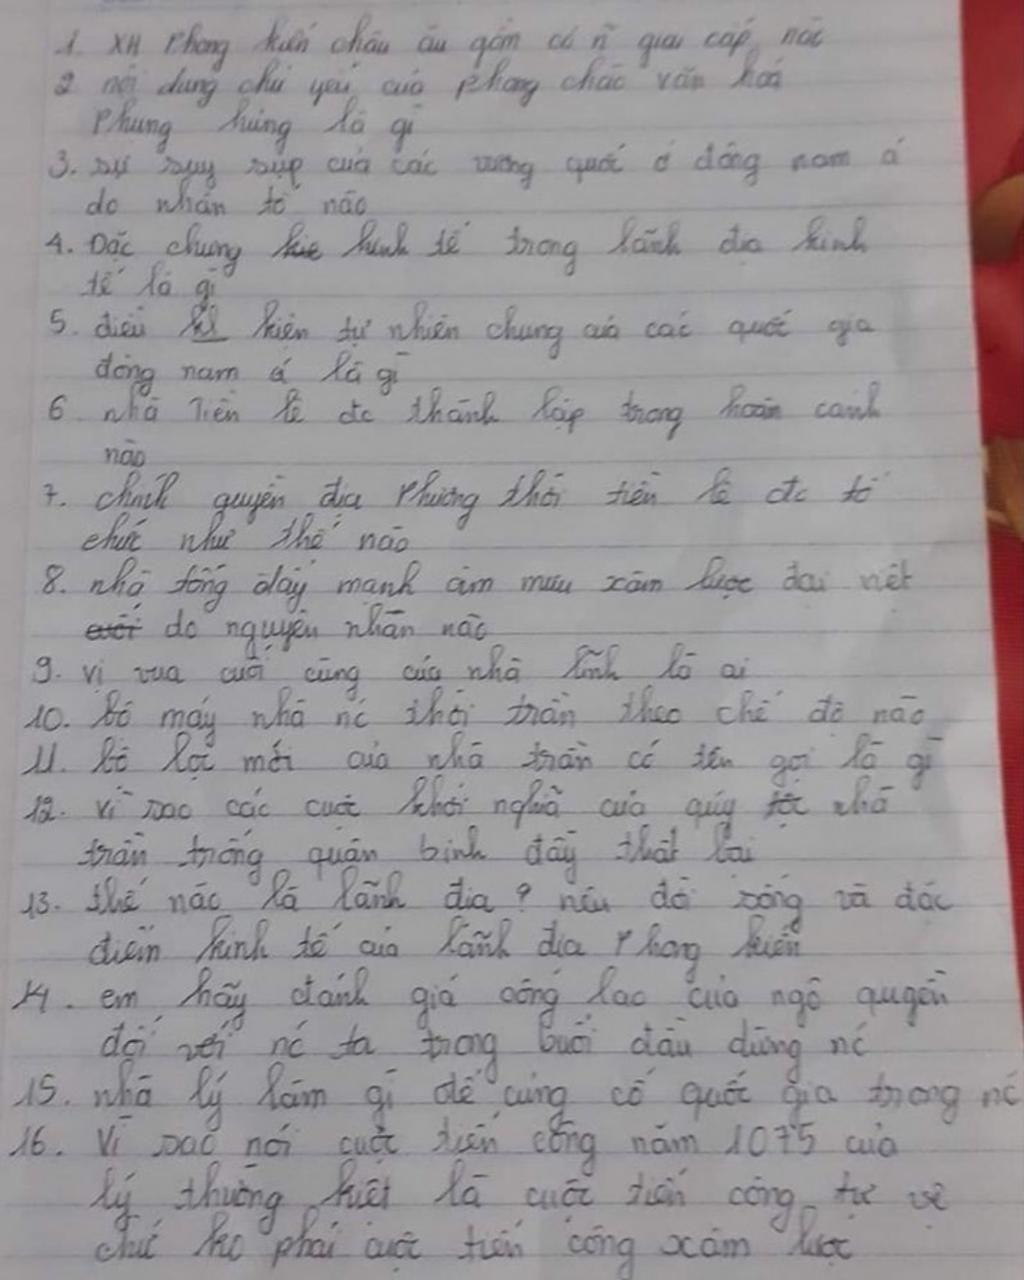 1. XH Phong kiến châu âu gồm có n~ giai cấp nào
2 nội dung chủ yếu của phong chào văn hoá
Phung hưng là gì
3. sự suy sụp của các vương quốc ở đông nam á
do nhân tố nào
4. Đặc chưng kinh tế trong lãnh địa kinh
tế là gì
5. điều kiện tự nhiên chung của các quốc gia
đông nam á là gì
6 nhà Tiền lê đc thành lập trong hoàn cảnh
nào
7. chính quyền địa Phương thời tiền lê đc tổ
chức như thế nào
8. nhà tống đẩy mạnh âm mưu xâm lược đại việt
do nguyên nhân nào
9. vị vua cuối cùng của nhà là ai
10. bộ máy nhà nc thời trần theo chế độ nào
11. bộ luật mới của nhà trần có tên gọi là gì
12. vì sao các cuộc khởi nghĩa của qúy tộc nhà
trần trống quân binh đầy thất bại
13. thế nào là lãnh địa? nêu đời sống và đặc
điểm kinh tế của lãnh địa Phong kiến
14. em hãy đánh giá công lao của ngô quyền
đối với nc ta trong buổi đầu dựng nc
15. nhà lý làm gì để củng cố quốc gia trong nc
16. Vì sao nói cuộc tiến công năm 1075 của
lý thường kiệt là cuộc tiến công tự vệ
chứ ko phải cuộc tiến công xâm lược